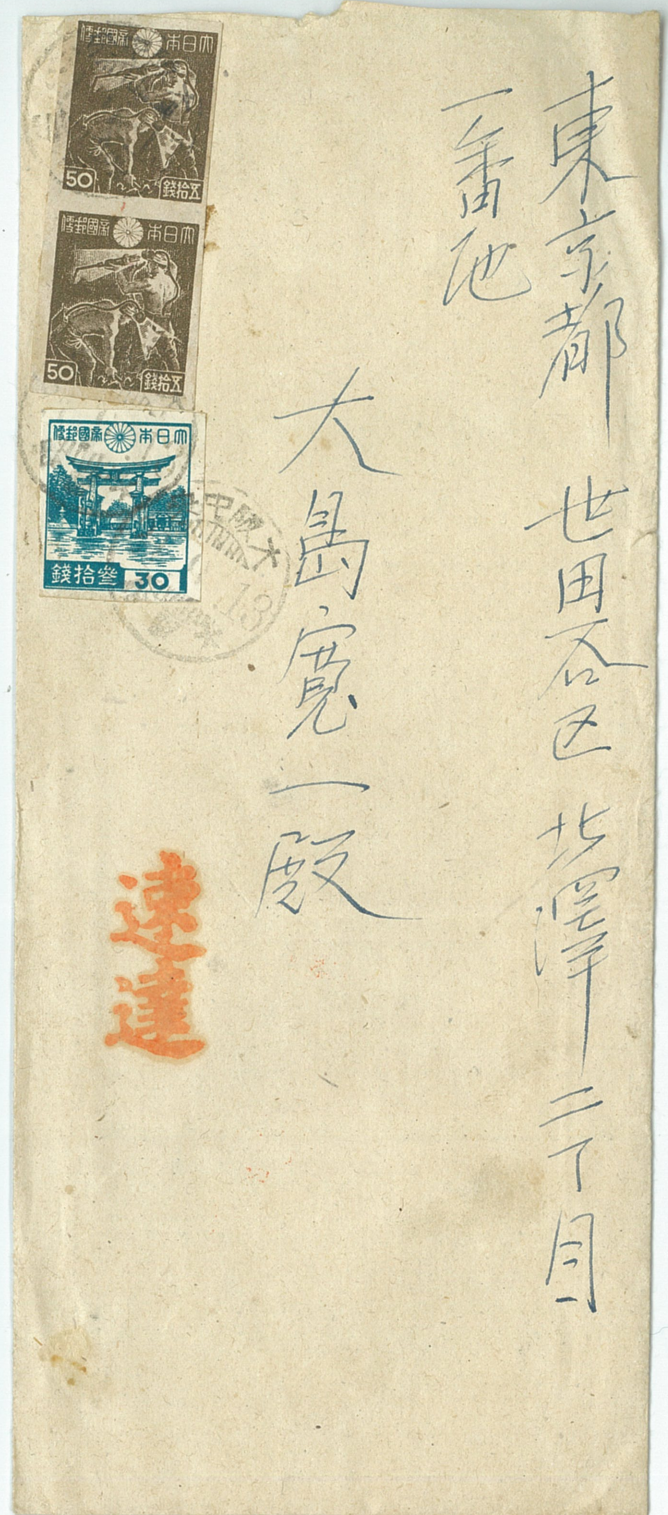 東京都 世田谷区 北澤二丁目
一番地
大島寛一殿
大日本帝國郵便
50 五拾錢
大日本帝國郵便
50 五拾錢
大日本帝國郵便
参拾錢 30
大阪中央
13
速達